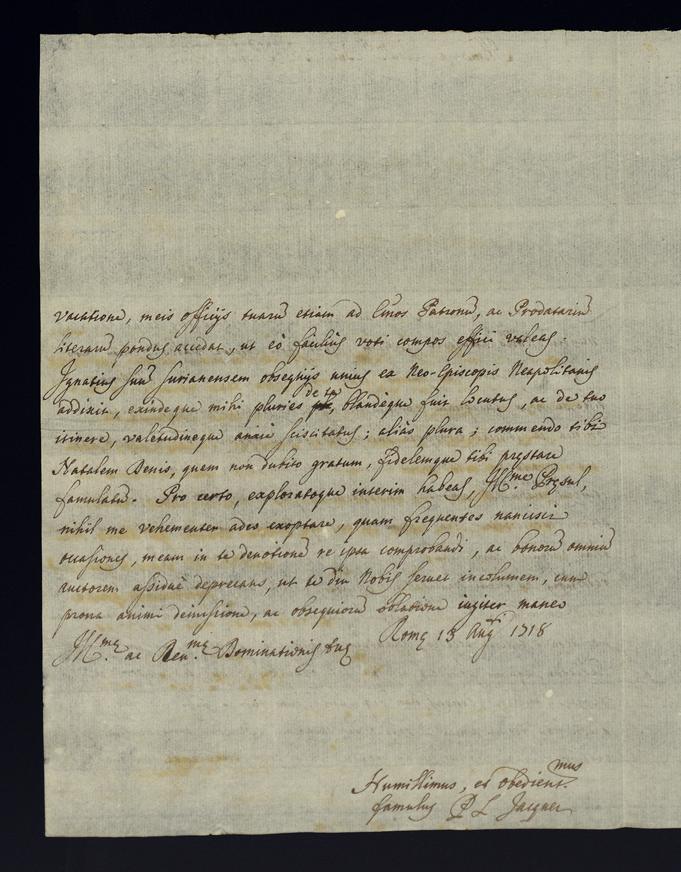 vacatione, meis officijs tuarū etiam ad Emos Patronū, ac Prodatariū
literarū pondus accedat, ut eò faciliùs voti compos effici valeas.
Ignatius suū surianensem obsequijs unius ex Neo-Episcopis Neapolitanis
addixit, exindeque mihi pluries de te, blandèque fuit locutus, ac de tuo
itinere, valetudineque anxiè sciscitatus; aliàs plura; commendo tibi
Natalem Benis, quem non dubito gratum, fidelemque tibi pręstare
famulatū. Pro certo, exploratoque interim habeas, Illme Pręsul,
nihil me vehementer adeo exoptare, quam frequentes nancisci
occasiones, meam in te devotionē re ipsa comprobandi, ac bonorū omniū
auctorem assiduè deprecans, ut te diu Nobis servet incolumem, cum
prona animi demissione, ac obsequiorū oblatione iugiter maneo
Illmę ac Revmę Dominationis tuę Romę 13 Augti 1718
Humillimus, et obedientmus
famulus P L